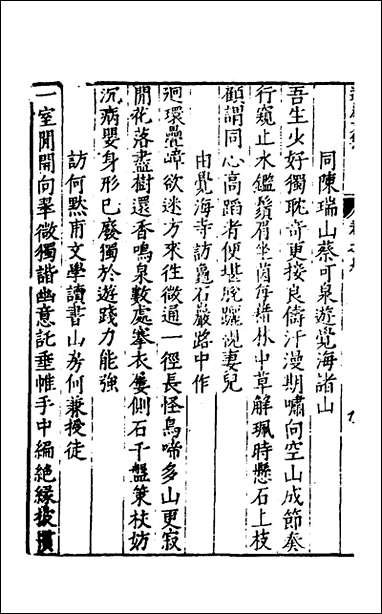 同陳瑞山蔡可泉遊覺海諸山
吾生少好獨耽奇更接良儔汗漫期嘯向空山成節奏
行窺止水鑑鬚眉坐茵每藉林中草解珮時懸石上枝
顧謂同心高蹈者便堪脫躧視妻兒
由覺海寺訪龜石巖路中作
迴環疊嶂欲迷方來往微通一徑長怪鳥啼多山更寂
閒花落盡樹還香鳴泉數處搴衣屢側石千盤策杖妨
沉病嬰身形已廢獨於遊踐力能強
訪何默甫文學讀書山房何兼授徒
一室閒開向翠微獨諧幽意託垂帷手中編絕緣披慣